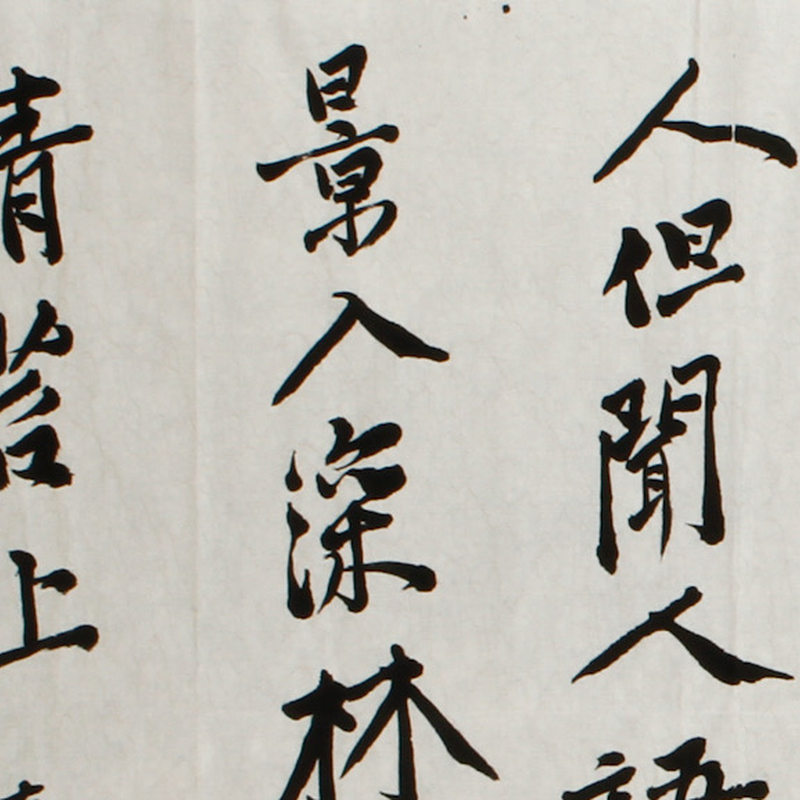 人但聞人語
景入深林
青苔上